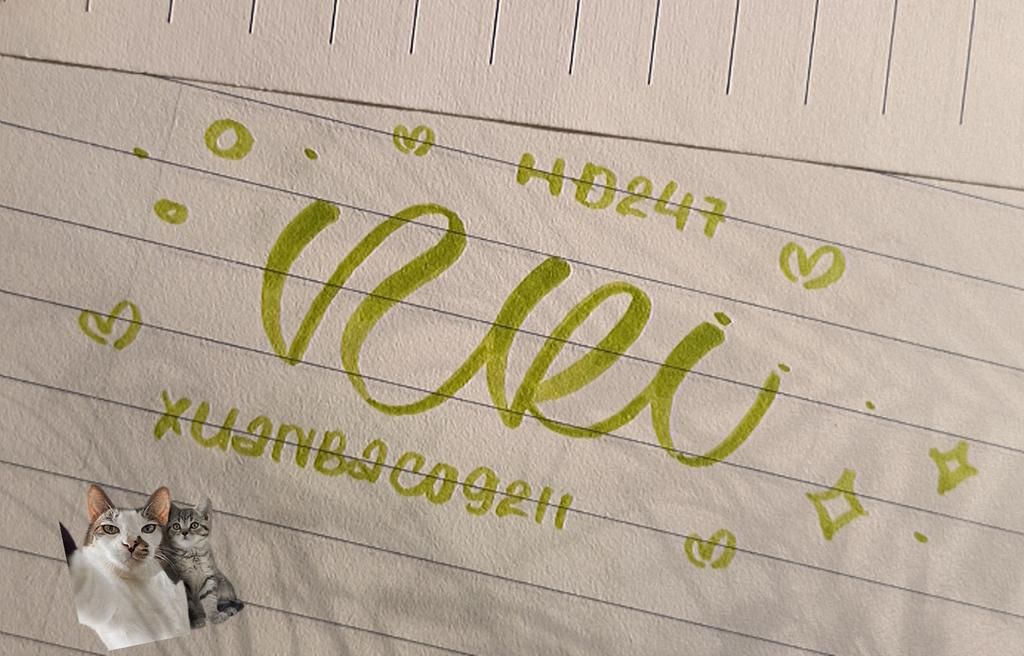 HD247
Rui
XUANBACO9211